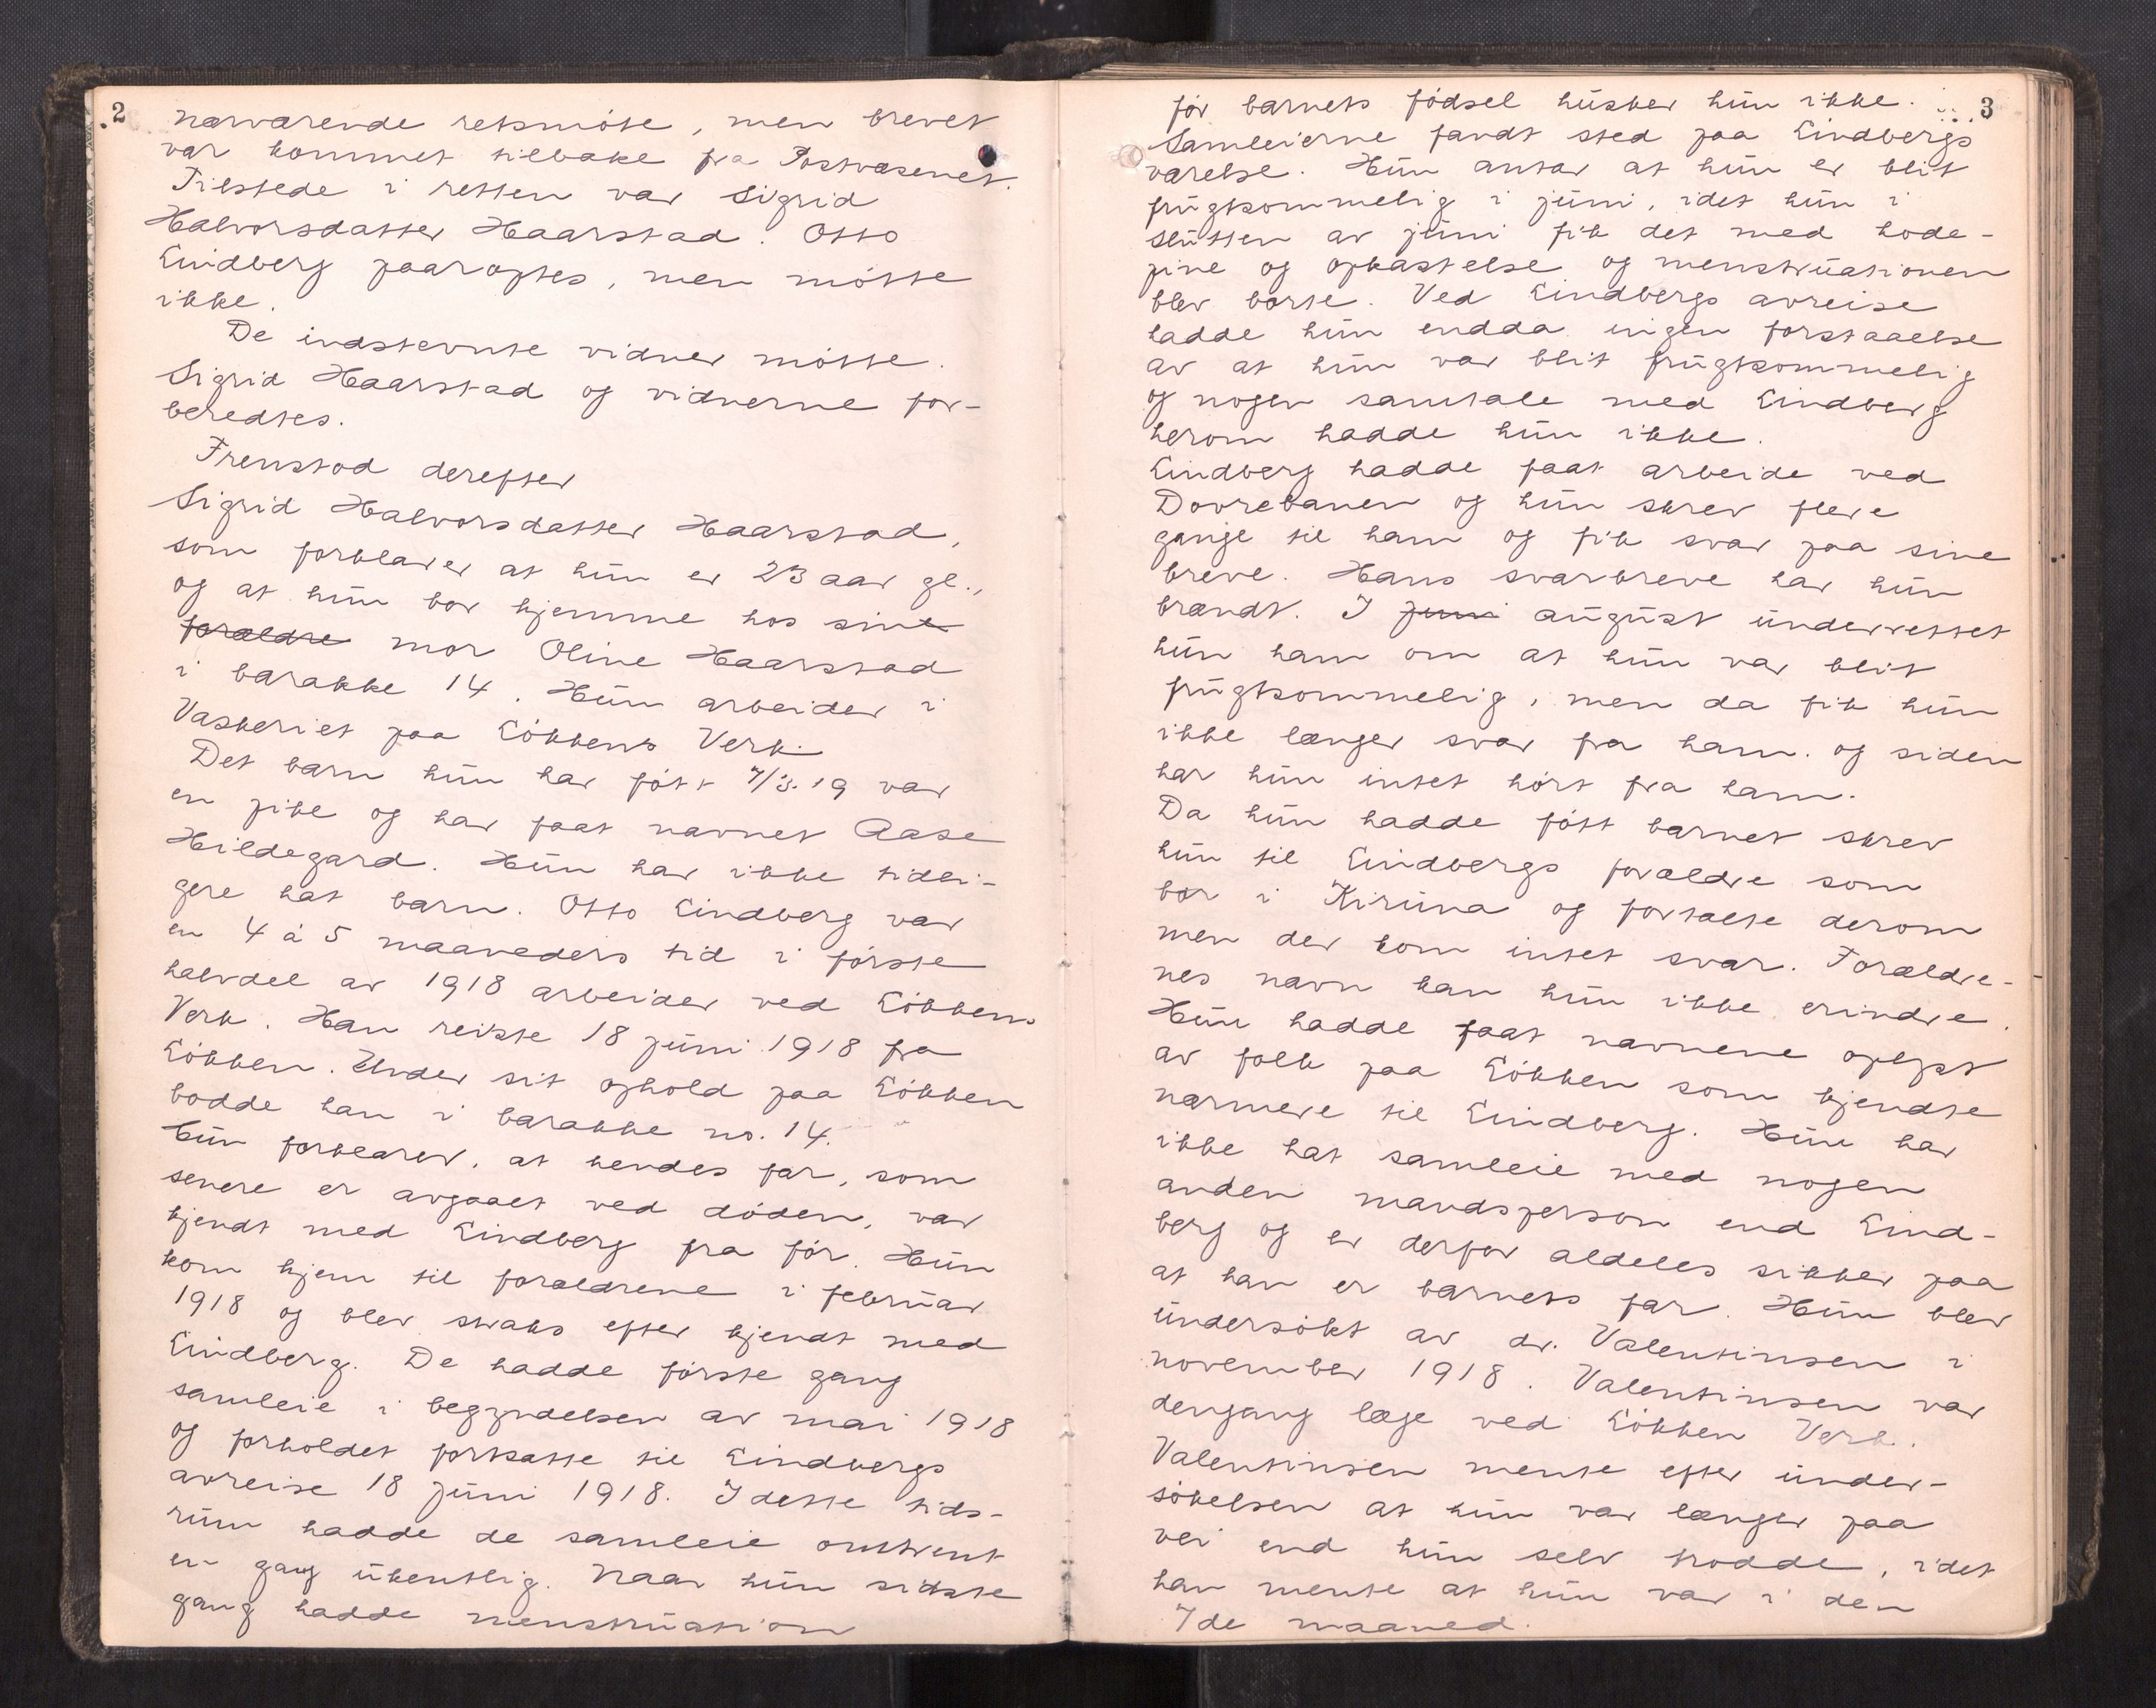 2
nærværende retsmöte, men brevet
var kommet tilbake fra Postvæsenet.
Tilstede i retten var Sigrid
Halvorsdatter Haarstad. Otto
Lindberg paaroptes, men mötte
ikke.
De indstevnte vidner mötte.
Sigrid Haarstad og vidnerne for-
beredtes.
Fremstod derefter
Sigrid Halvorsdatter Haarstad,
som forklarer at hun er 23 aar gl.,
og at hun bor hjemme hos sine
forældre mor Oline Haarstad
i barakke 14. Hun arbeider i
Vaskeriet paa Lökkens Verk.
Det barn hun har fött 7/3.19 var
en pike og har faat navnet Aase
Hildegard. Hun har ikke tidli-
gere hat barn. Otto Lindberg var
en 4 à 5 maaneders tid i förste
halvdel av 1918 arbeider ved Lökkens
Verk. Han reiste 18 juni 1918 fra
Lökken. Under sit ophold paa Lökken
bodde han i barakke no. 14.
Hun forklarer, at hendes far, som
senere er avgaaet ved döden, var
kjendt med Lindberg fra för. Hun
kom hjem til forældrene i februar
1918 og blev straks efter kjendt med
Lindberg. De hadde förste gang
samleie i begyndelsen av mai 1918
og forholdet fortsatte til Lindbergs
avreise 18 juni 1918. I dette tids-
rum hadde de samleie omtrent
en gang ukentlig. Naar hun sidste
gang hadde menstruation
3
för barnets födsel husker hun ikke.
Samleierne fandt sted paa Lindbergs
værelse. Hun antar at hun er blit
frugtsommelig i juni, idet hun i
slutten av juni fik det med hode-
pine og opkastelse og menstruationen
blev borte. Ved Lindbergs avreise
hadde hun endda ingen forstaaelse
av at hun var blit frugtsommelig
og nogen samtale med Lindberg
herom hadde hun ikke.
Lindberg hadde faat arbeide ved
Dovrebanen og hun skrev flere
gange til ham og fik svar paa sine
breve. Hans svarbreve har hun
brændt. I juni august underrettet
hun ham om at hun var blit
frugtsommelig, men da fik hun
ikke længer svar fra ham. og siden
har hun intet hört fra ham.
Da hun hadde fött barnet skrev
hun til Lindbergs forældre som
bor i Kiruna og fortalte derom
men der kom intet svar. Forældre-
nes navn kan hun ikke erindre.
Hun hadde faat navnene oplyst
av folk paa Lökken som kjendte
nærmere til Lindberg. Hun har
ikke hat samleie med nogen
anden mandsperson end Lind-
berg og er derfor aldeles sikker paa
at han er barnets far. Hun blev
undersökt av dr. Valentinsen i
november 1918. Valentinsen var
dengang læge ved Lökken Verk.
Valentinsen mente efter under-
sökelsen at hun var længer paa
vei end hun selv trodde, idet
han mente at hun var i den
7de maaned.